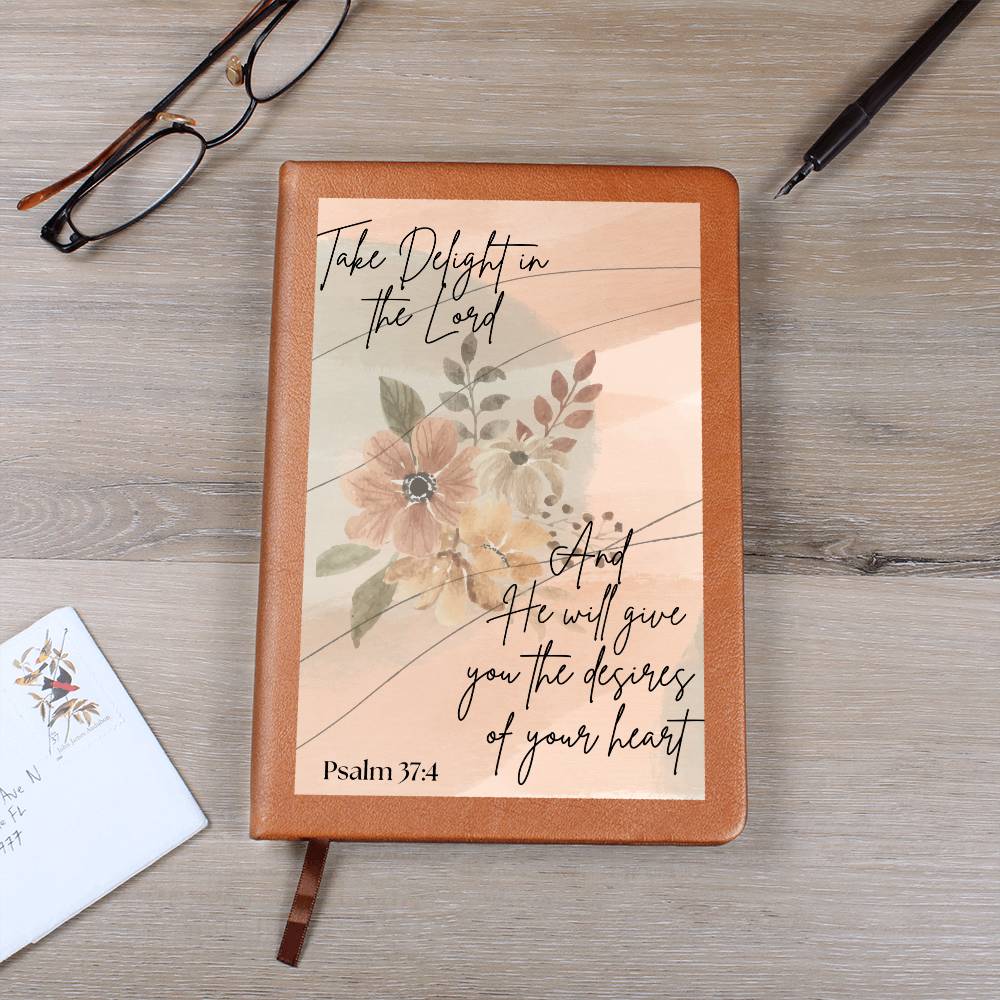 Take Delight in
the Lord
And
He will give
you the desires
of your heart
Psalm 37:4
John James Audubon
37
Ave N
FL
977